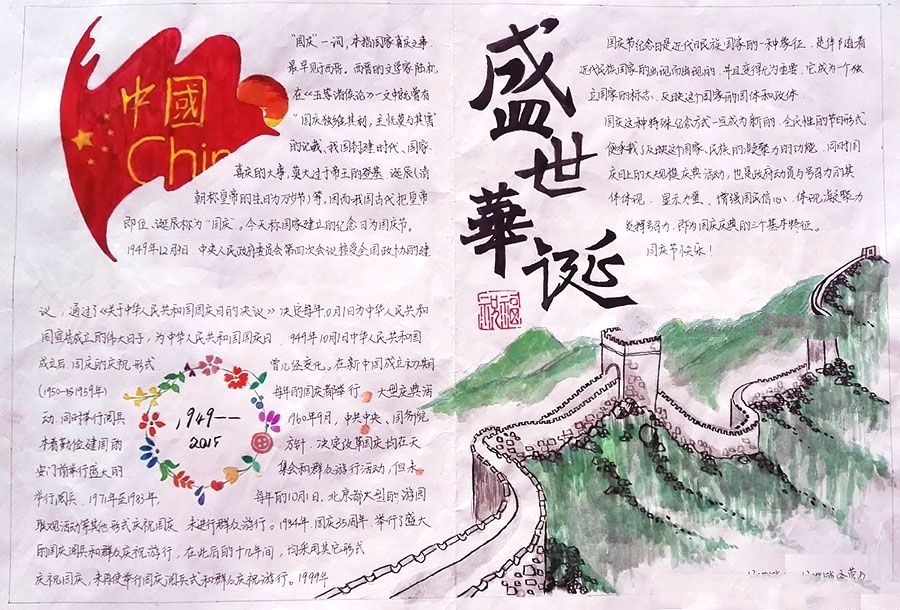 中國
China
"国庆"一词,本指国家喜庆之事、
最早见于西晋。西晋的文学家陆机
在《五等诸侯论》一文中就曾有
"国庆独飨其利,主忧莫与其害"
的记载、我国封建时代、国家
喜庆的大事,莫大过于帝王的登基、诞辰(清
朝称皇帝的生日为万岁节)等,因而我国古代把皇帝
即位、诞辰称为"国庆"。今天称国家建立的纪念日为国庆节。
1949年12月3日,中央人民政府委员会第四次会议接受全国政协的建
议,通过了《关于中华人民共和国国庆日的决议》决定每年10月1日为中华人民共和
国宣告成立的伟大日子,为中华人民共和国国庆日
949年10月1日中华人民共和国
成立后,国庆的庆祝形式
曾几经变化。在新中国成立初期
(1950-1959年)
每年的国庆都举行
大型庆典活
动,同时举行阅兵
1960年9月,中共中央、国务院
本着勤俭建国的
方针,决定改革国庆
集会和群众游行活动,但未
举行阅兵、1971年至1983年,
每年的10月1日,北京都大型的游园
联欢活动等其他形式庆祝国庆、未进行群众游行。1984年,国庆35周年,举行了盛大
的国庆阅兵和群众庆祝游行,在此后的十几年间,均采用其它形式
庆祝国庆,未再使举行国庆阅兵式和群众庆祝游行。1999年
1949——
2015
盛世
華诞
祝福
国庆节纪念日是近代民族国家的一种象征,是伴随着
近代民族国家的出现而出现的,并且变得尤为重要,它成为一个独
立国家的标志,反映这个国家的国体和政体
国庆这种特殊纪念方式一旦成为新的、全民性的节日形式
便承载了反映这个国家、民族的凝聚力的功能,同时国
庆日上的大规模庆典活动,也是政府动员与号召力的具
体体现,显示力量、增强国民信心、体现凝聚力
发挥号召力,即为国庆庆典的三个基本特征。
国庆节快乐!